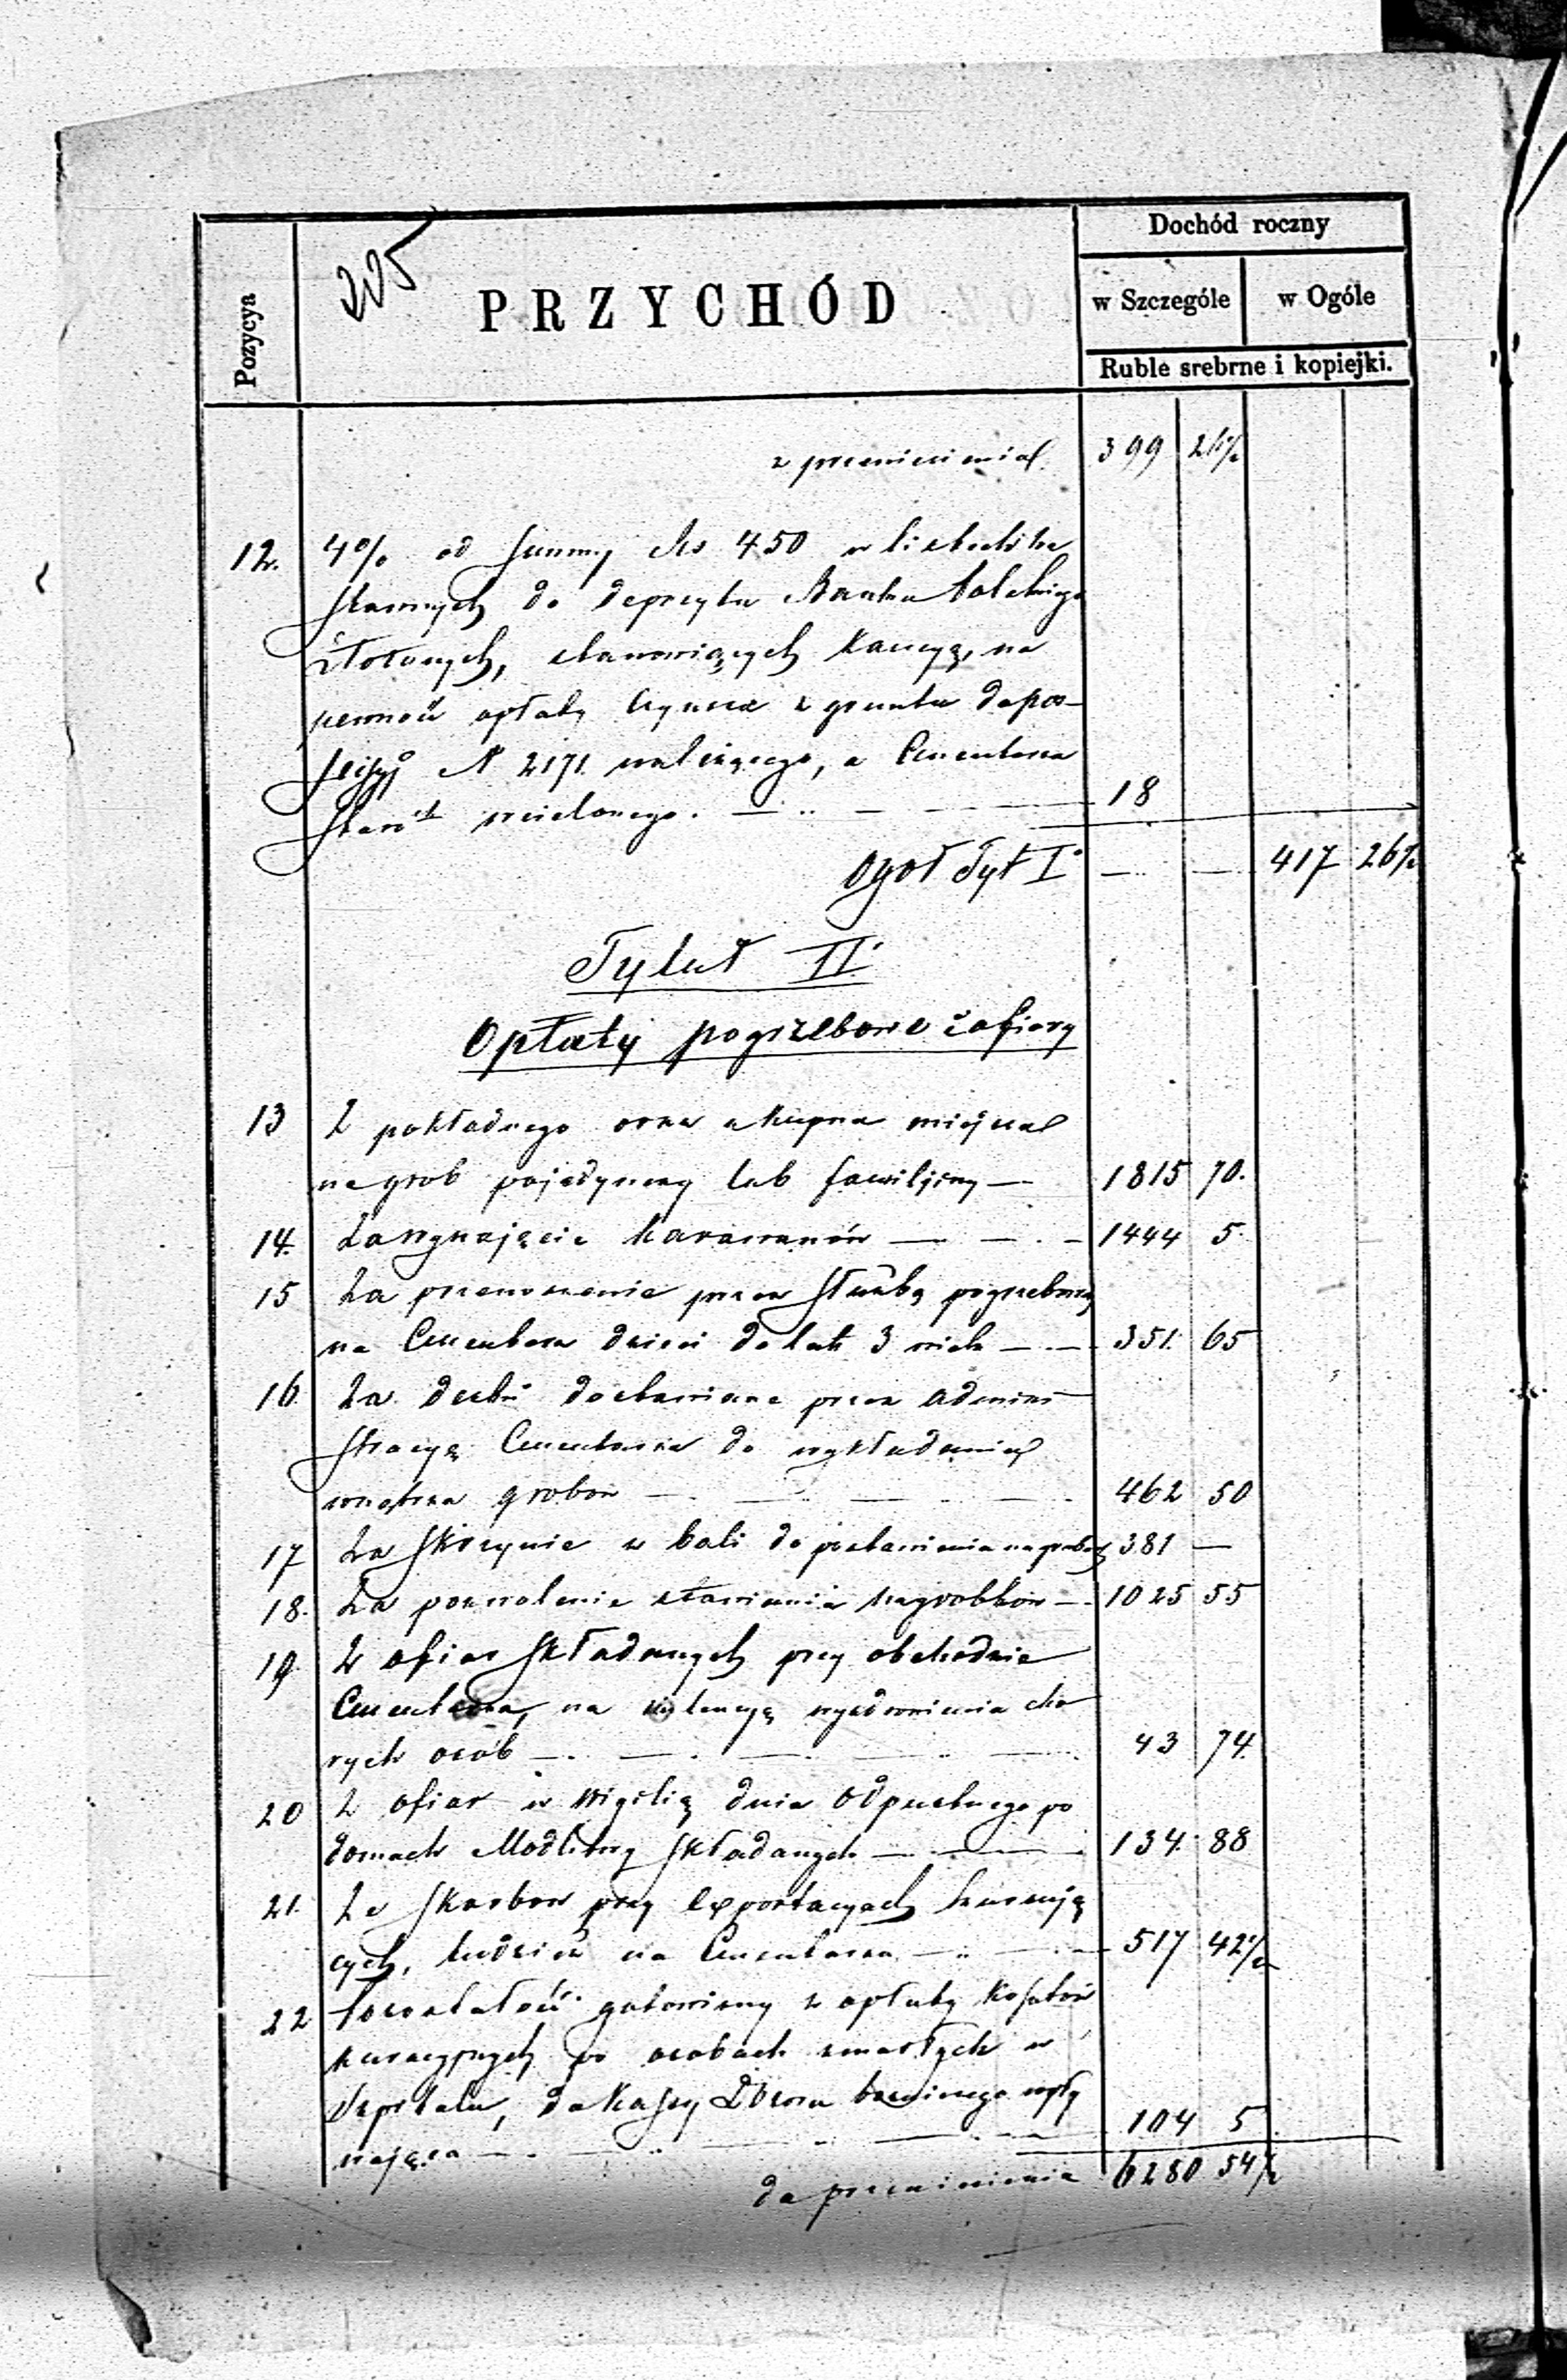 Dochód roczny
225
Pozycya
PRZYCHÓD
w Szczególe
w Ogóle
Ruble srebrne i kopiejki.
z przeniesienia 399 26½
12. 4% od Summy Rs 450 w listach za
stawnych do depozytu Banku Polskiego
złożonych, stanowiących Kaucyą, na
pewność opłaty czynszu z gruntu do pos-
sessyi N 2171 należącego, a Cmentarza
wcielonego. 18
Ogół Tyt I° 417 26½
Tytuł II
Opłaty pogrzebowe i ofiary
13 Z pokładnego oraz zkupna miejsca
na grob pojedynczy lub familijny — 1815 70.
14. Za wynajęcie Karawanów — 1444 5.
15 Za przenoszenie przez Służbę pogrzebową
na Cmentarz dzieci do lat 3 wieku — 351. 65
16. Za deski dostawiane przez Admini
stracyą Cmentarza do wykładania
wnętrza grobów — 462 50
17 Za Skrzynie z bali do postawienia na groby 381 —
18. Za pozwolenie stawiania nagrobków — 1025 55
19. Z ofiar Składanych przy obchodzie
Cmentarza, na intencyą wyzdrowienia cho
rych osób — 43 74.
20 Z ofiar w Wigilią dnia Odpustnego po
domach Modlitwy Składanych — 134. 88
21. Ze Skarbon przy exportacyach kursują
cych, tudzież na Cmentarzu — 517 42½
22 Pozostałość gotowizny z opłaty Kosztów
kuracyjnych po osobach zmarłych w
Szpitalu, do Kassy Dozoru Bożniczego wpły
wająca — 104 5
do przeniesienia 6280 54½